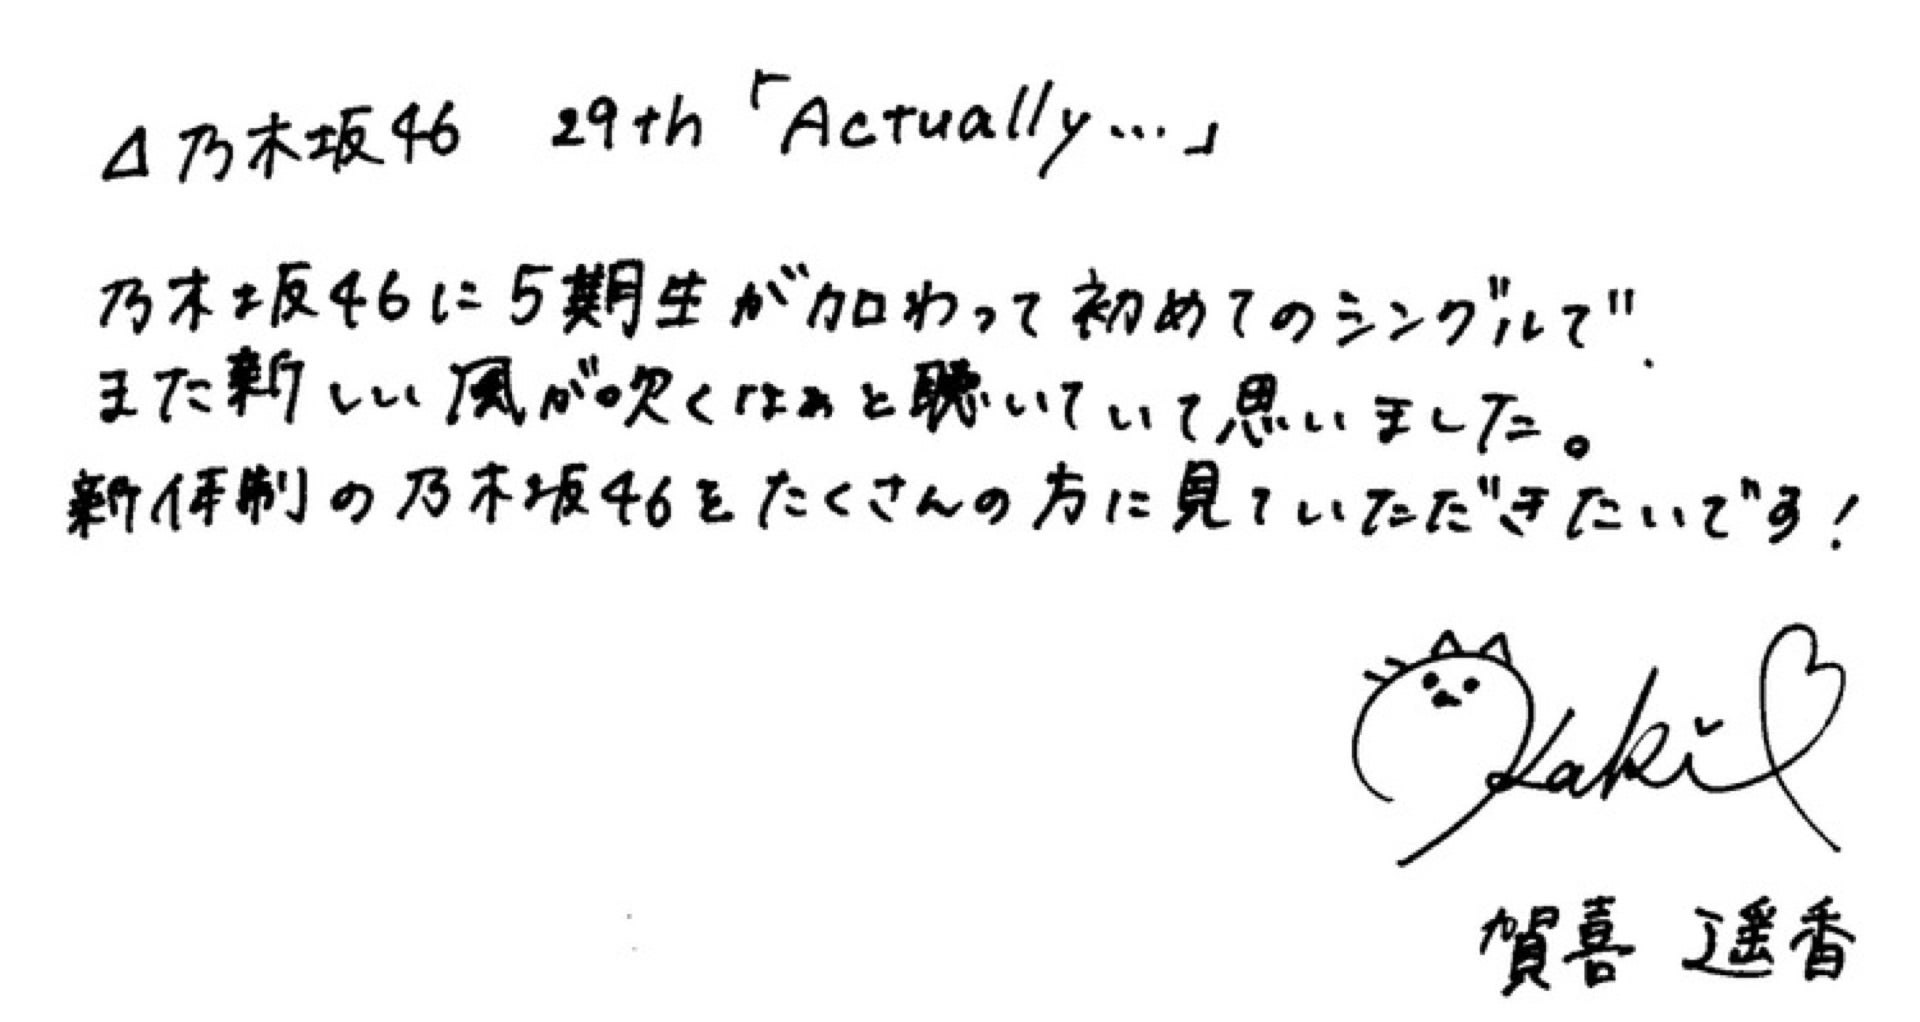 △乃木坂46 29th「Actually…」
乃木坂46に5期生が加わって初めてのシングルで、
また新しい風が吹くなぁと聴いていて思いました。
新体制の乃木坂46をたくさんの方に見ていただきたいです!
Kaki
賀喜 遥香